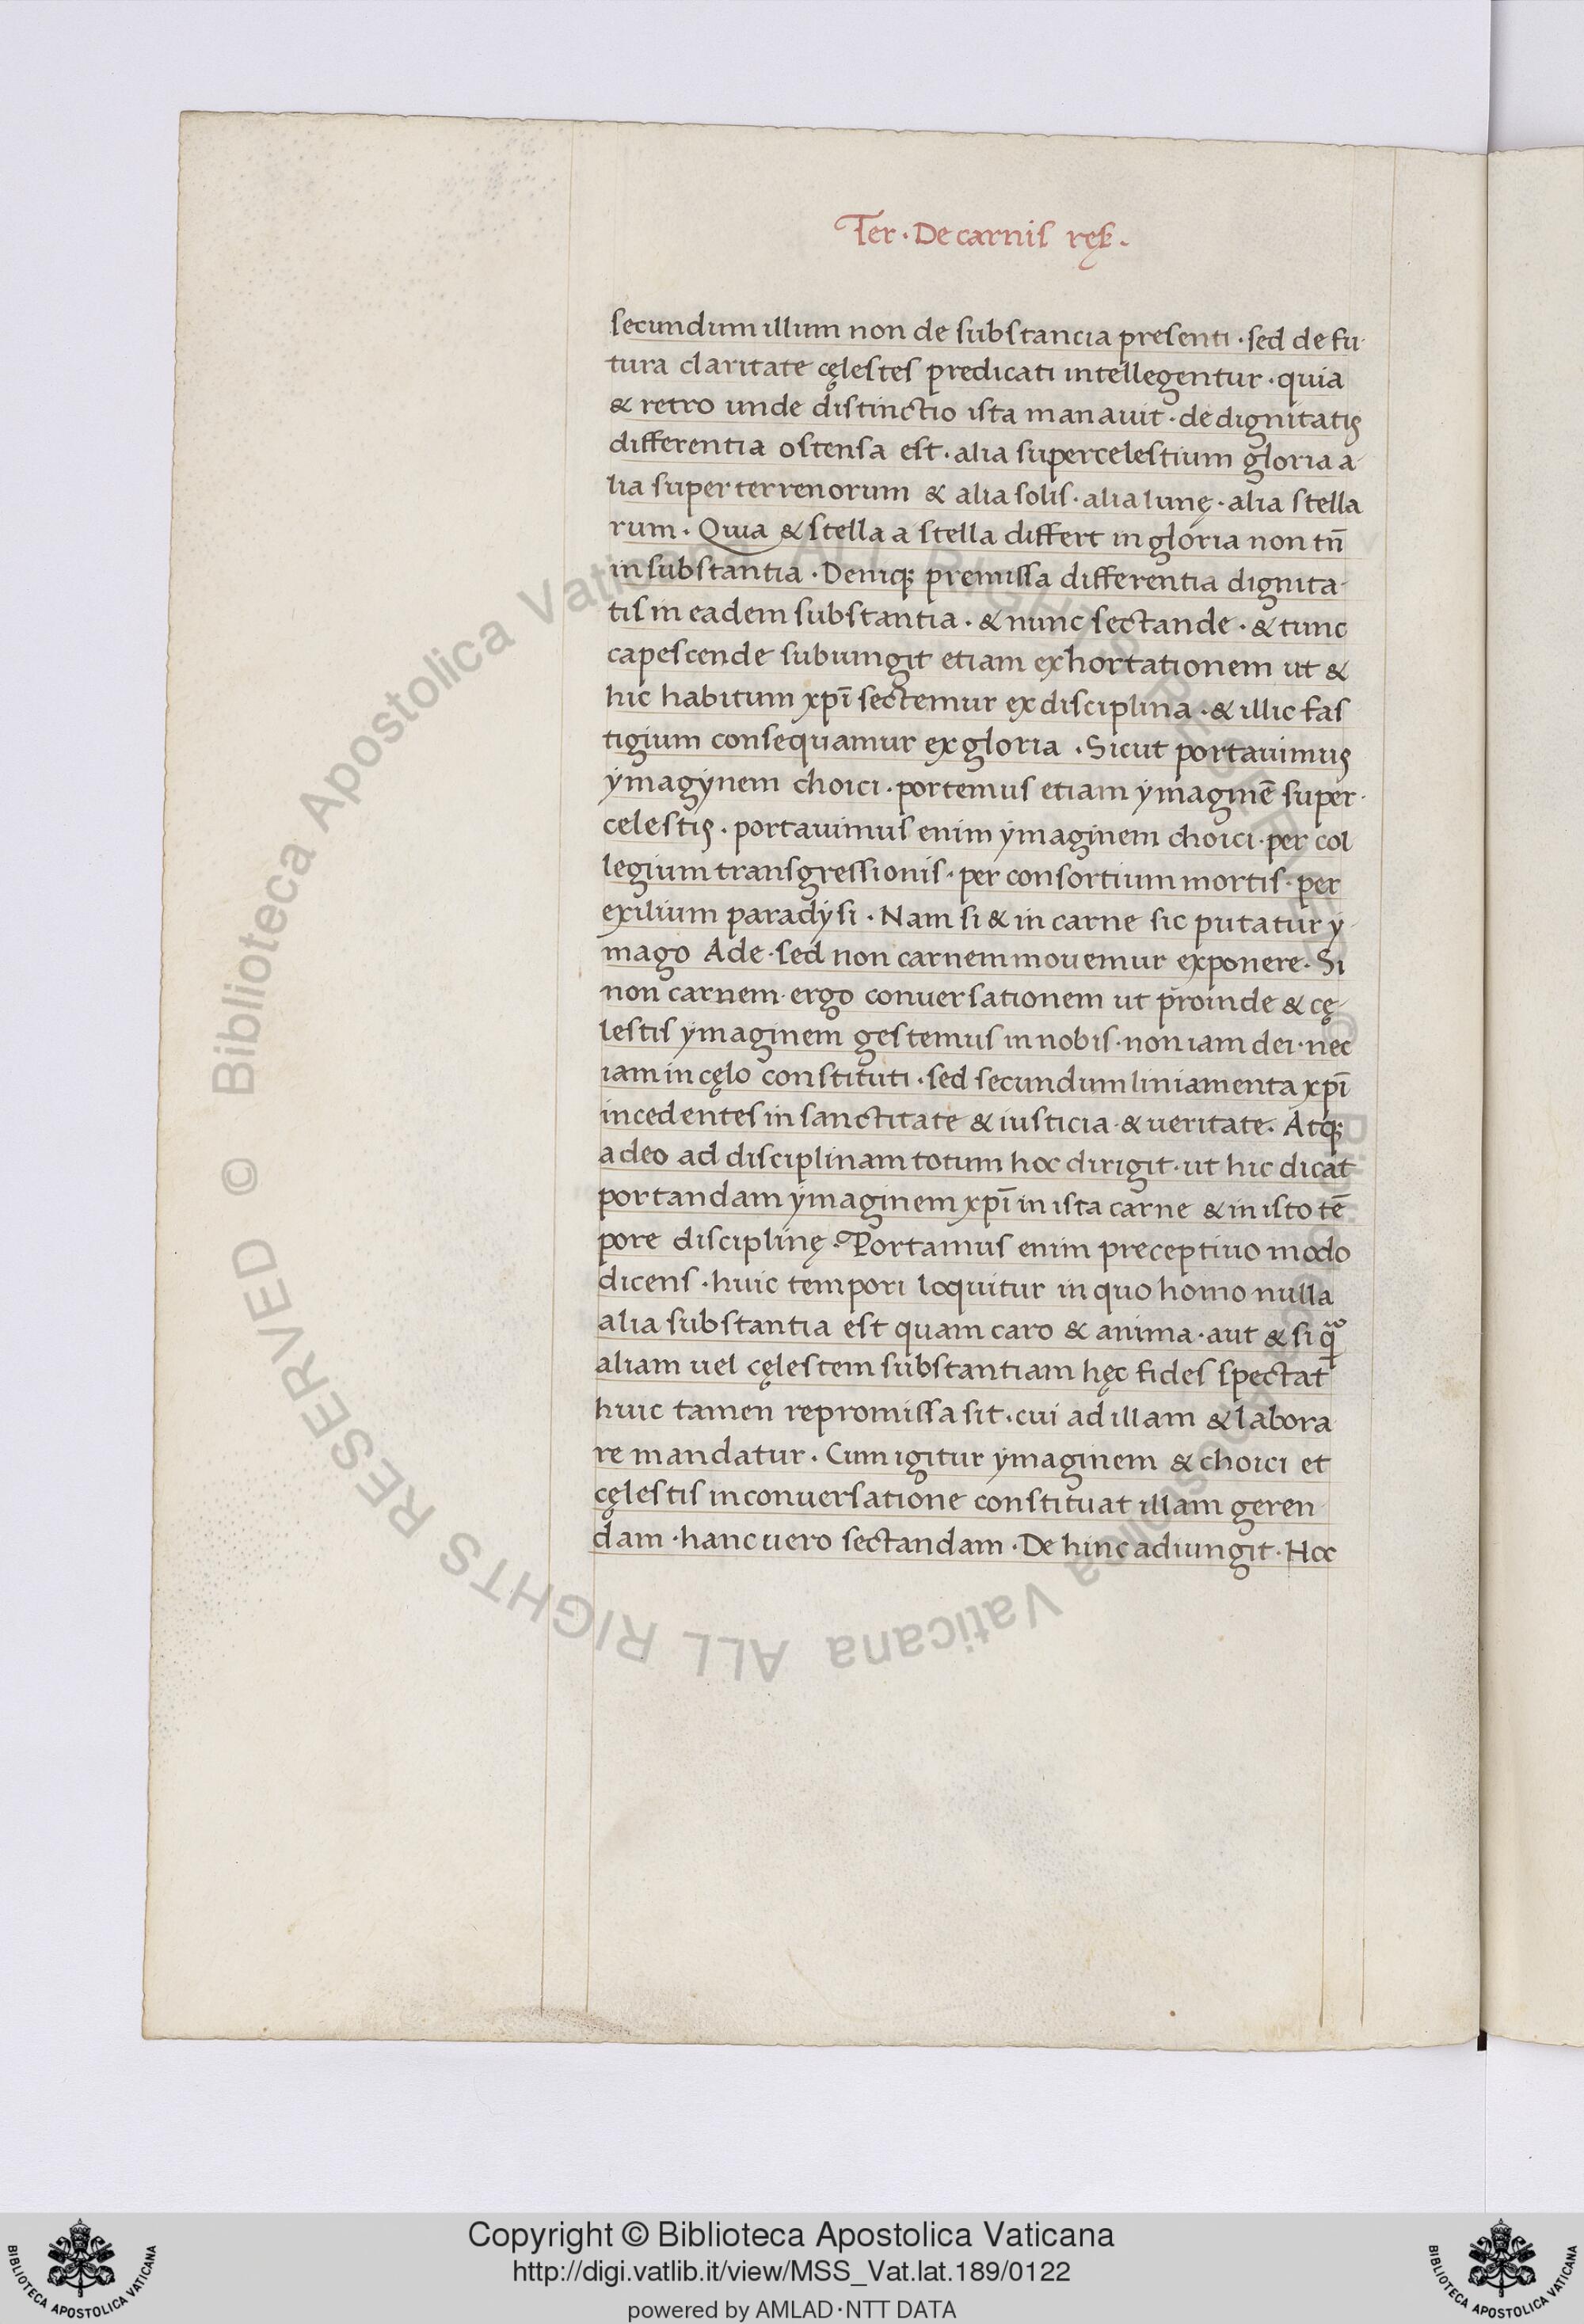 Ter · De carnis ręs̄ .
secundum illum non de substancia presenti · sed de fu-
tura claritate cęlestes predicati intellegentur · quia
& retro unde distinctio ista manauit · de dignitatis
differentia ostensa est · alia supercelestium gloria a-
lia super terrenorum & alia solis · alia lunę · alia stella
rum · Quia & stella a stella differt in gloria non tn̄
in substantia · Deniq; premissa differentia dignita-
tis in eadem substantia · & nunc sectande · & tunc
capescende subiungit etiam exhortationem ut &
hic habitum xp̄i sectemur ex disciplina · & illic fas
tigium consequamur ex gloria · Sicut portauimus
ymagynem choici · portemus etiam ymaginē super-
celestis · portauimus enim ymaginem choici · per col
legium transgressionis · per consortium mortis · per
exilium paradysi · Nam si & in carne sic putatur y-
mago Ade · sed non carnem mouemur exponere · Si
non carnem · ergo conuersationem ut proinde & cę-
lestis ymaginem gestemus in nobis · non iam dei · nec
iam in cęlo constituti · sed secundum liniamenta xp̄i
incedentes in sanctitate & iusticia · & ueritate . Atq;
adeo ad disciplinam totum hoc dirigit · ut hic dicat
portandam ymaginem xp̄i in ista carne & in isto tē
pore disciplinę · Portamus enim preceptiuo modo
dicens · huic tempori loquitur in quo homo nulla
alia substantia est quam caro & anima · aut & si
aliam uel cęlestem substantiam hęc fides spectat
huic tamen repromissa sit · cui ad illam & labora
re mandatur · Cum igitur ymaginem & choici et
cęlestis in conuersatione constituat illam geren
dam · hanc uero sectandam · De hinc adiungit · Hoc
© Biblioteca Apostolica Vaticana ALL RIGHTS RESERVED
Copyright © Biblioteca Apostolica Vaticana
http://digi.vatlib.it/view/MSS_Vat.lat.189/0122
powered by AMLAD·NTT DATA
BIBLIOTECA APOSTOLICA VATICANA
BIBLIOTECA APOSTOLICA VATICANA